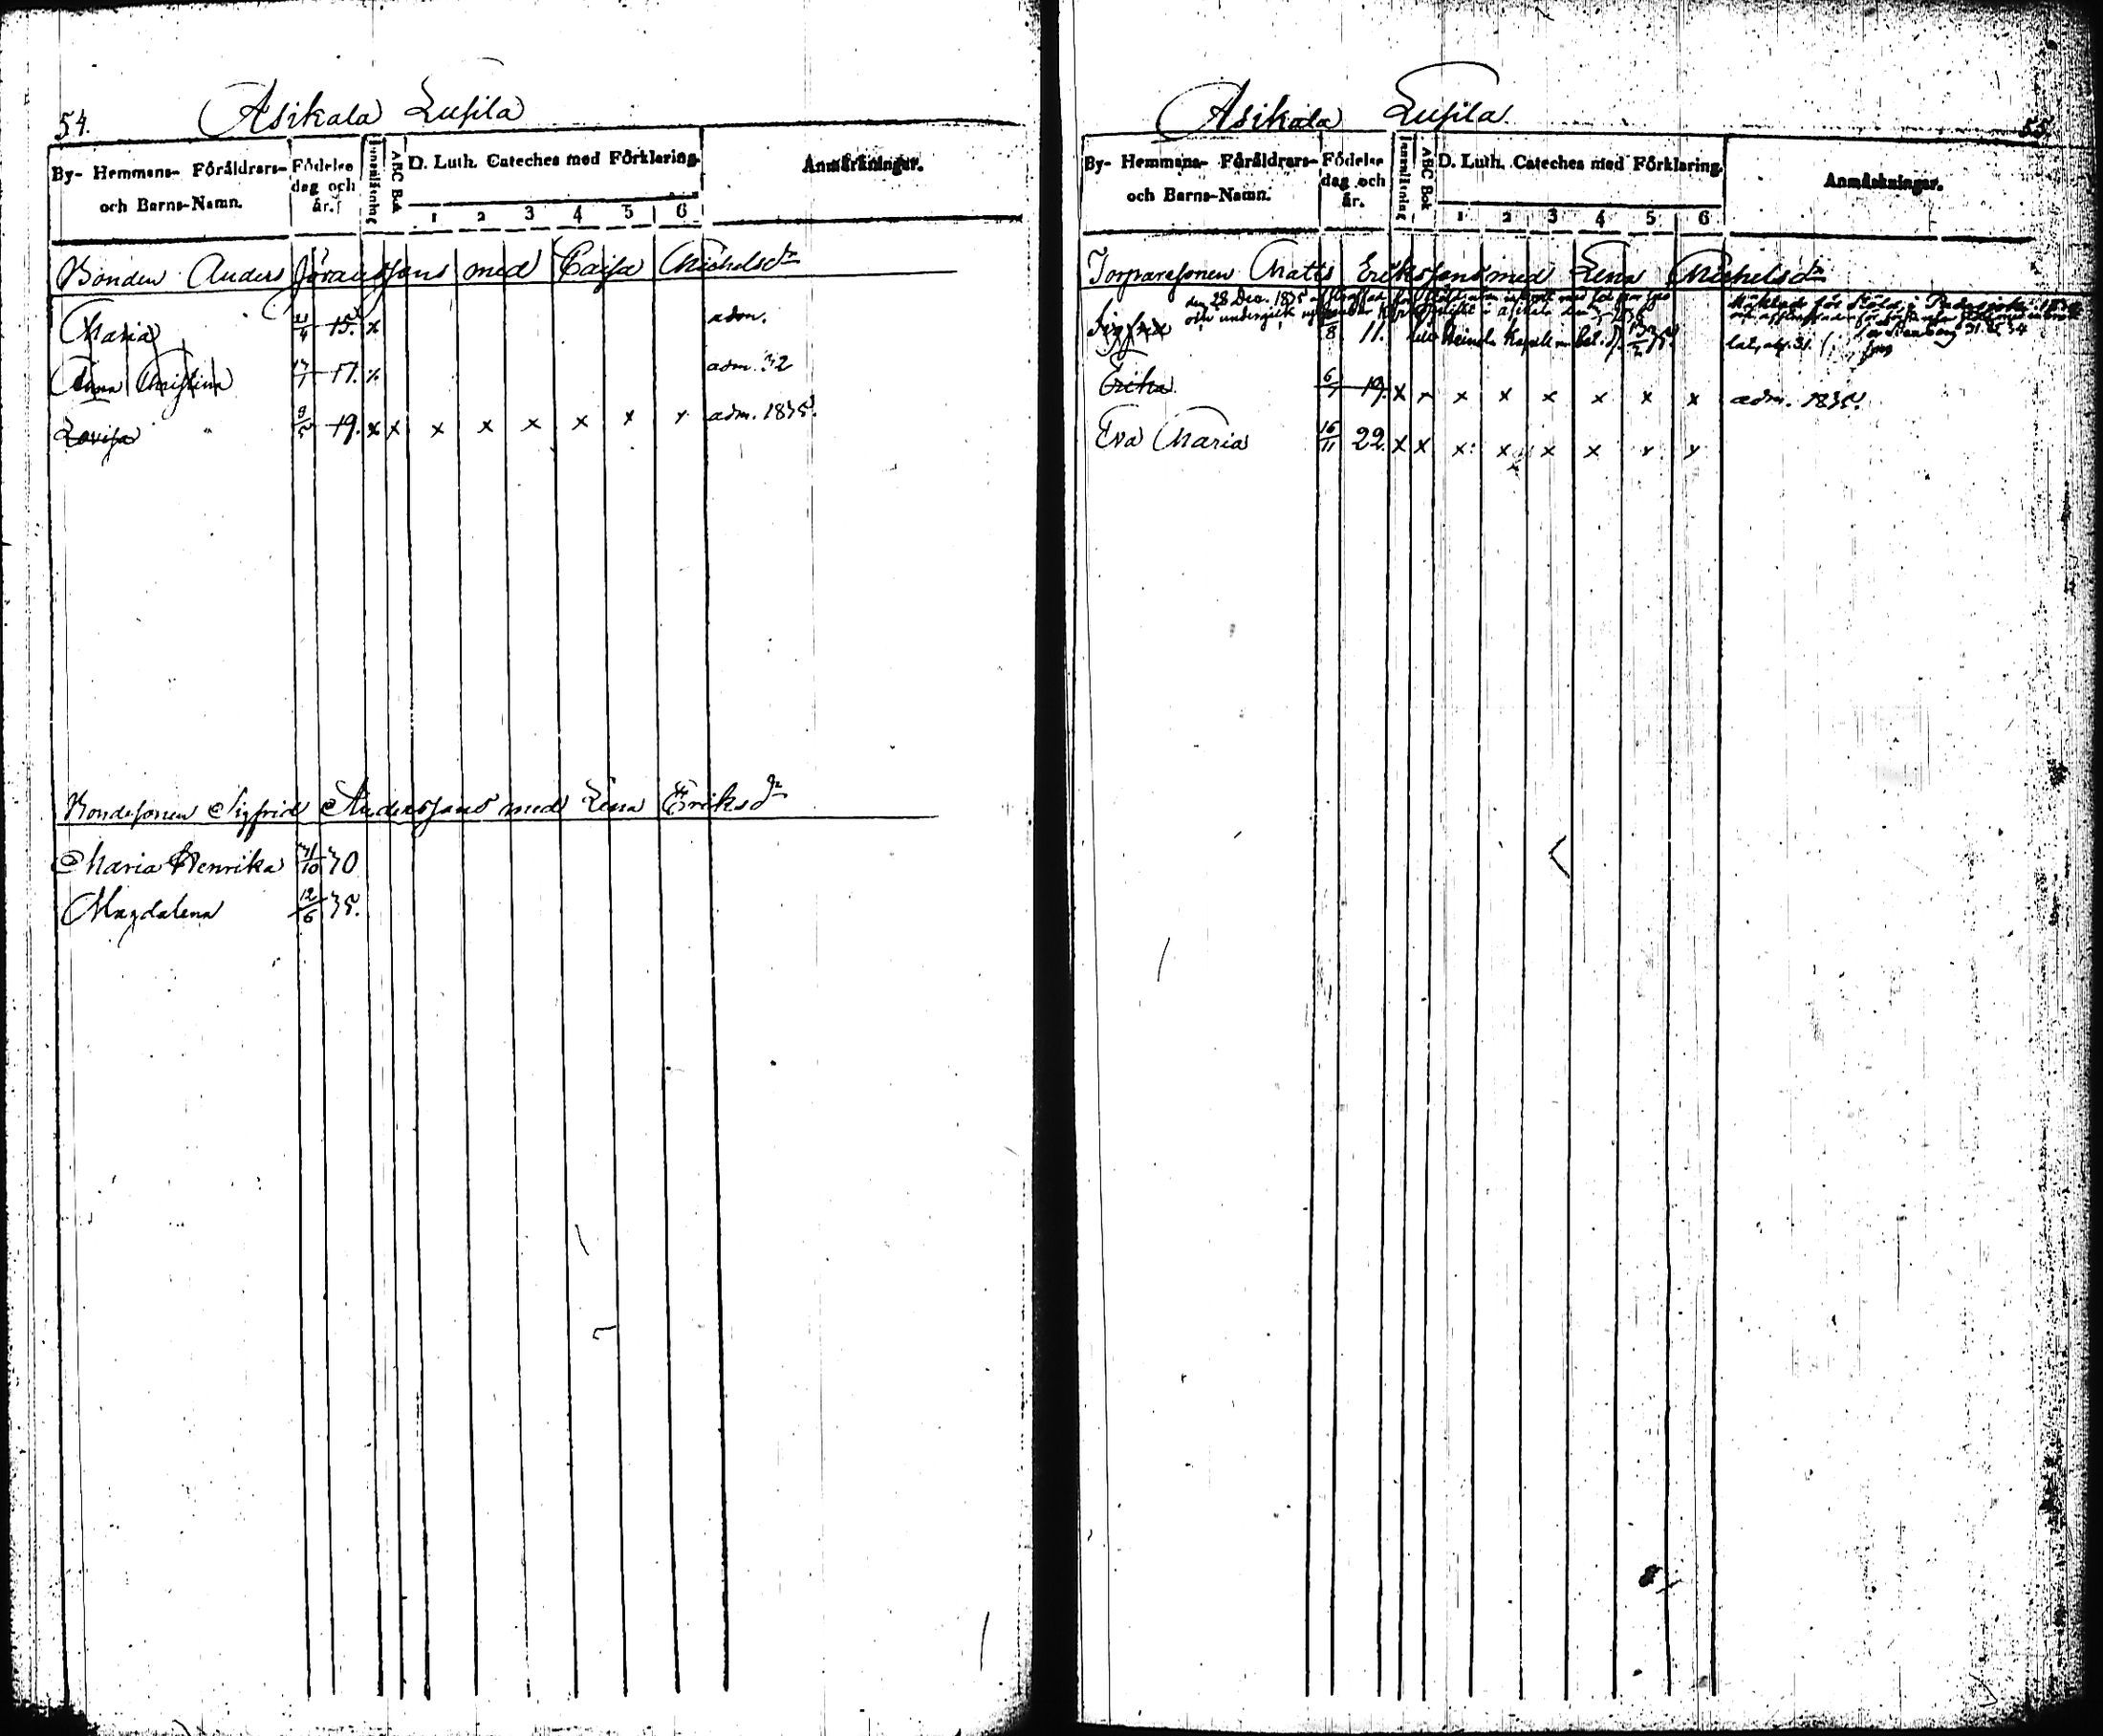 54.
Asikala Lusila
By- Hemmans- Föräldrars- och Barns-Namn.
Födelse dag och år.
Innanläsning
ABC Bok
D. Luth. Cateches med Förklaring.
1 2 3 4 5 6
Anmärkningar.
Bonden Anders Göranssons med Caisa Michelsdr
Maria 4 15. x adm.
Anna Christina 17. x adm. 32
Lovisa 9/5 19. x x x x x x x x adm. 1835.
Bondesonen Sigfrid Anderssons med Lena Eriksdr
Maria Henrika 10 30
Magdalena 12/6 35.
Asikala Lusila
55.
By- Hemmans- Föräldrars- och Barns-Namn.
Födelse dag och år.
Innanläsning
ABC Bok
D. Luth. Cateches med Förklaring.
1 2 3 4 5 6
Anmärkningar.
Torparesonen Matts Erikssons med Lena Michelsdr
den 28 Dec. 1835
och undergick
för Stöld i Padasjoki
8 11.
Erika 6/7 19. x x x x x x x x adm. 1835.
Eva Maria 16/11 22. x x x x x x x x